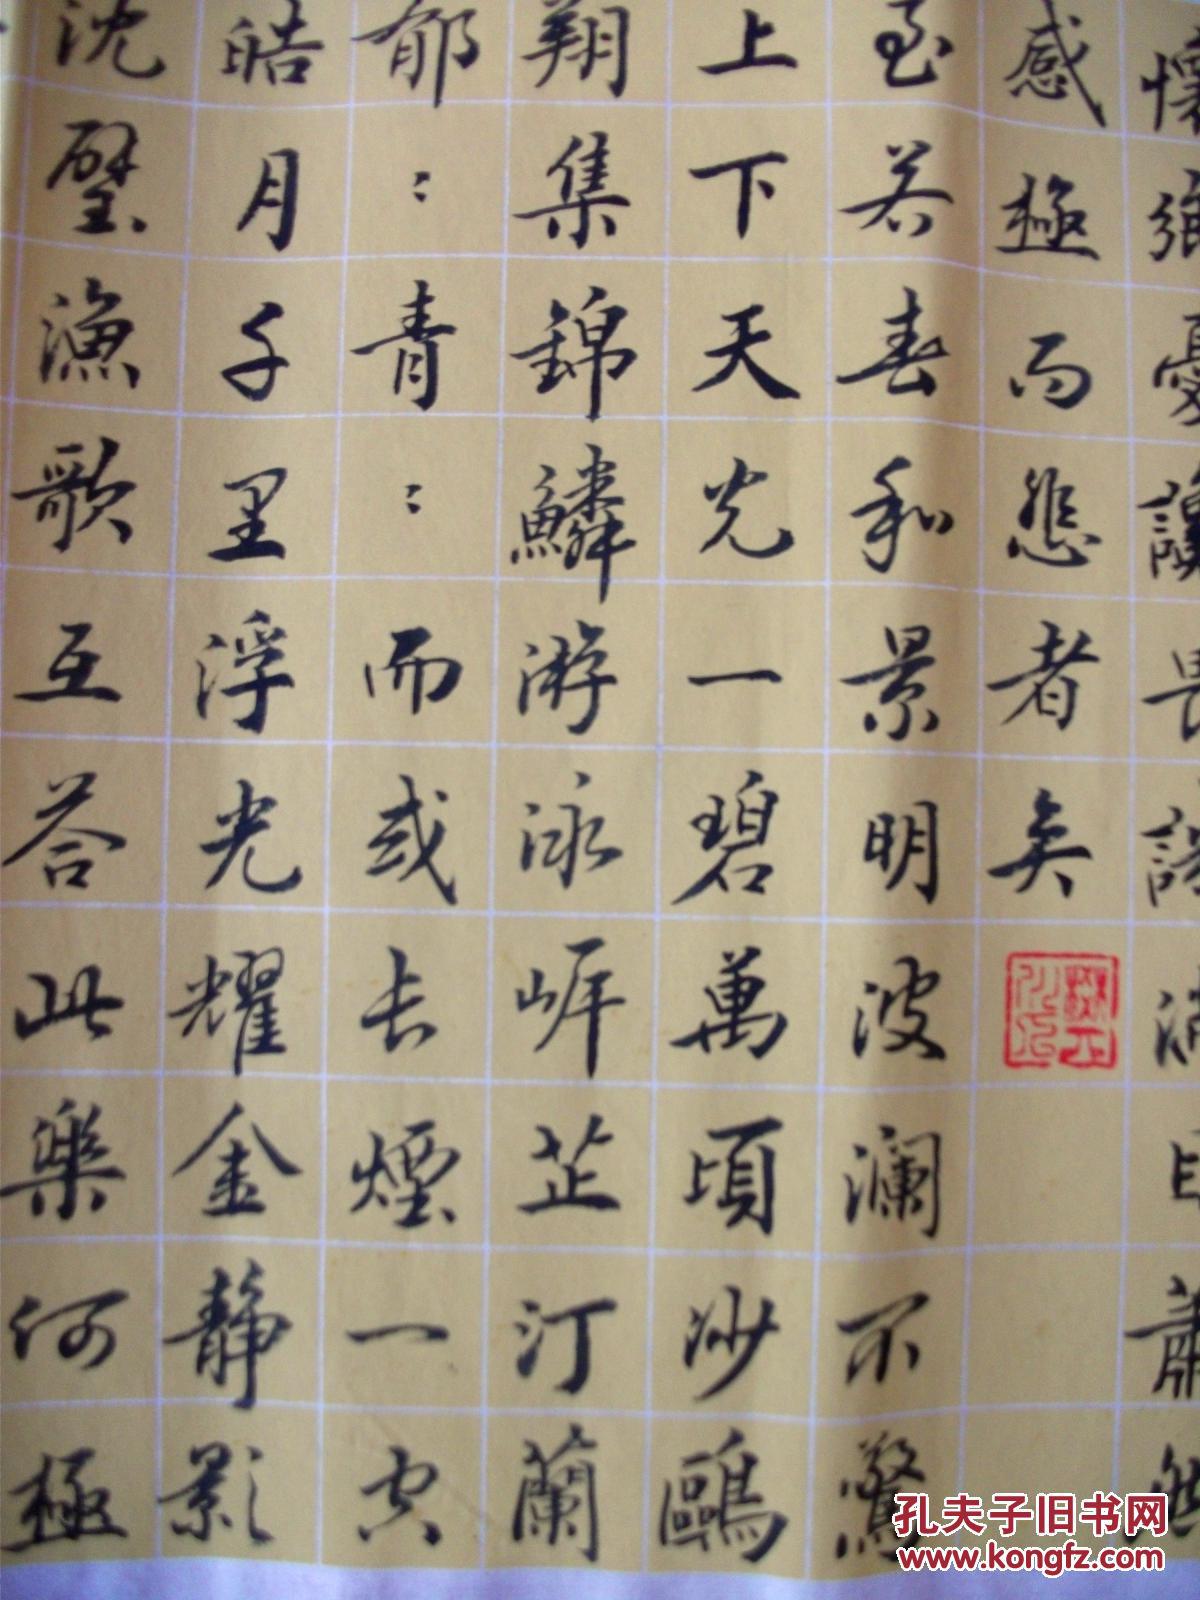 懷鄉憂讒畏譏滿目蕭然
感極而悲者矣
至若春和景明波瀾不驚
上下天光一碧萬頃沙鷗
翔集錦鱗游泳岸芷汀蘭
郁：青：而或長煙一空
皓月千里浮光耀金静影
沈壁漁歌互答此樂何極
孔夫子旧书网
www.kongfz.com